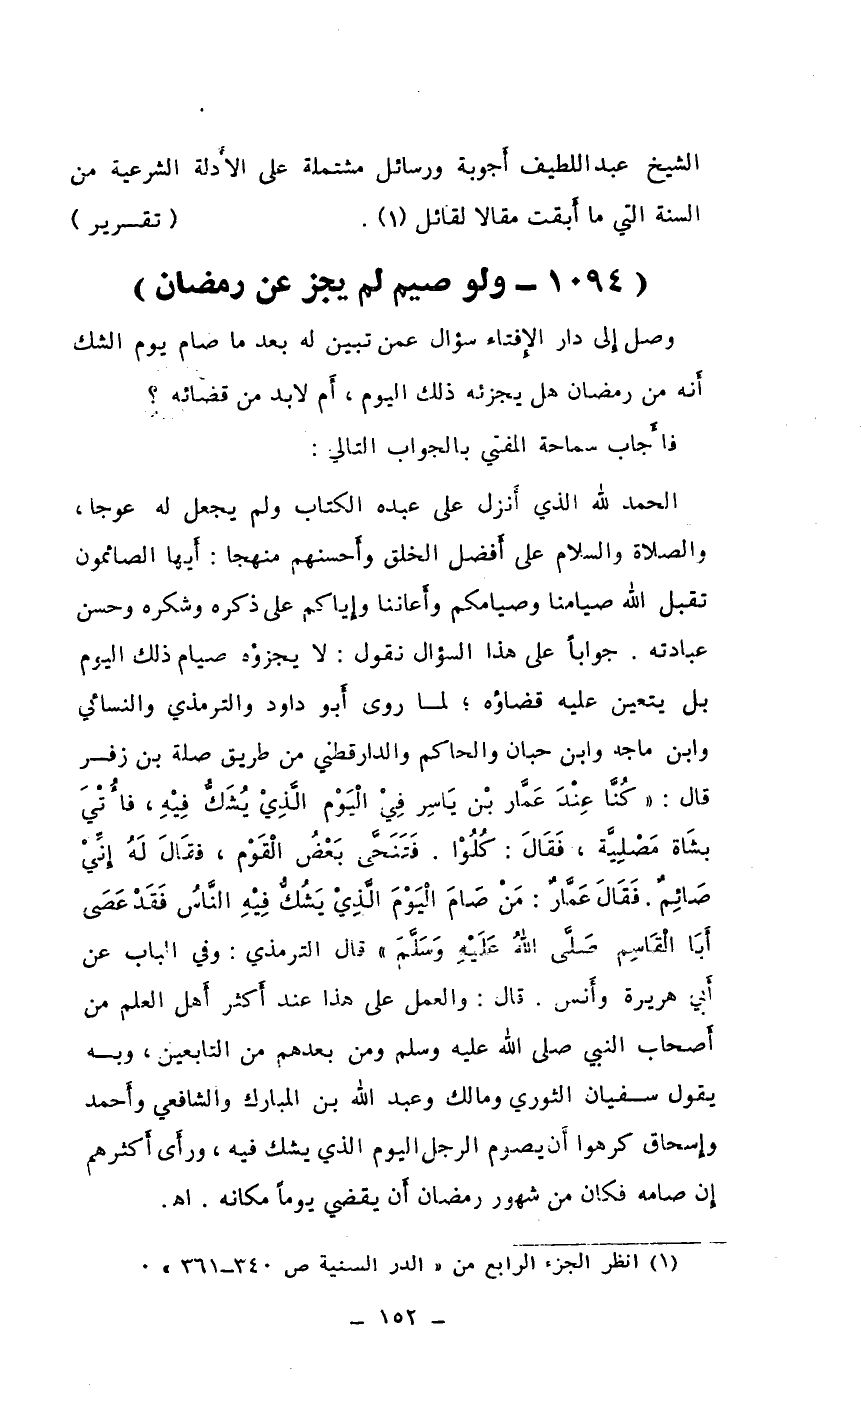 الشيخ عبداللطيف أجوبة ورسائل مشتملة على الأدلة الشرعية من
السنة التي ما أبقت مقالا لقائل (١) . ( تقـرير )
( ١٠٩٤ - ولو صيم لم يجز عن رمضان )
وصل إلى دار الإفتاء سؤال عمن تبين له بعد ما صام يوم الشك
أنه من رمضان هل يجزئه ذلك اليوم ، أم لابد من قضائه ؟
فأجاب سماحة المفتي بالجواب التالي :
الحمد لله الذي أنزل على عبده الكتاب ولم يجعل له عوجا ،
والصلاة والسلام على أفضل الخلق وأحسنهم منهجا : أيها الصائمون
تقبل الله صيامنا وصيامكم وأعاننا وإياكم على ذكره وشكره وحسن
عبادته . جواباً على هذا السؤال نقول : لا يجزوُه صيام ذلك اليوم
بل يتعين عليه قضاؤه ؛ لمـا روى أبو داود والترمذي والنسائي
وابن ماجه وابن حبان والحاكم والدارقطني من طريق صلة بن زفـر
قال : « كُنَّا عِنْدَ عَمَّار بْن يَاسِر فِيْ الْيَوْم الَّذِيْ يُشَكُّ فِيْهِ ، فأُتْيَ
بشَاة مَصْلِيَّة ، فَقَالَ : كُلُوْا . فَتَنَحَّى بَعْضُ الْقَوْم ، فقَالَ لَهُ إنِّيْ
صَائِمٌ . فَقَالَ عَمَّارٌ : مَنْ صَامَ الْيَوْمَ الَّذِيْ يَشُكُّ فِيْهِ النَّاسُ فَقَدْ عَصَى
أبَا الْقَاسِم صَلَّى اللهُ عَلَيْهِ وَسَلَّمَ » قال الترمذي : وفي الباب عن
أبي هريرة وأنس . قال : والعمل على هذا عند أكثر أهل العلم من
أصحاب النبي صلى الله عليه وسلم ومن بعدهم من التابعين ، وبـه
يقول سـفيان الثوري ومالك وعبد الله بن المبارك والشافعي وأحمد
وإسحاق كرهوا أن يصوم الرجل اليوم الذي يشك فيه ، ورأى أكثرهم
إن صامه فكان من شهور رمضان أن يقضي يوماً مكانه . اهـ.
(١) انظر الجزء الرابع من « الدر السنية ص ٣٤٠-٣٦١ » .
- ١٥٢ -